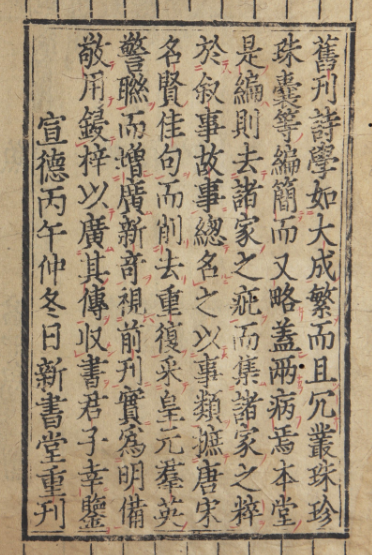 舊刋詩學如大成繁而且冗叢珠珍
珠囊等編簡而又略盖兩病焉本堂
是編則去諸家之疵而集諸家之粹
於叙事故事緫名之以事類摭唐宋
名賢佳句而削去重復采皇元羣英
警聮而增廣新竒視前刋實爲明備
敬用鋟梓以廣其傳収書君子幸鑒
宣德丙午仲冬日新書堂重刋